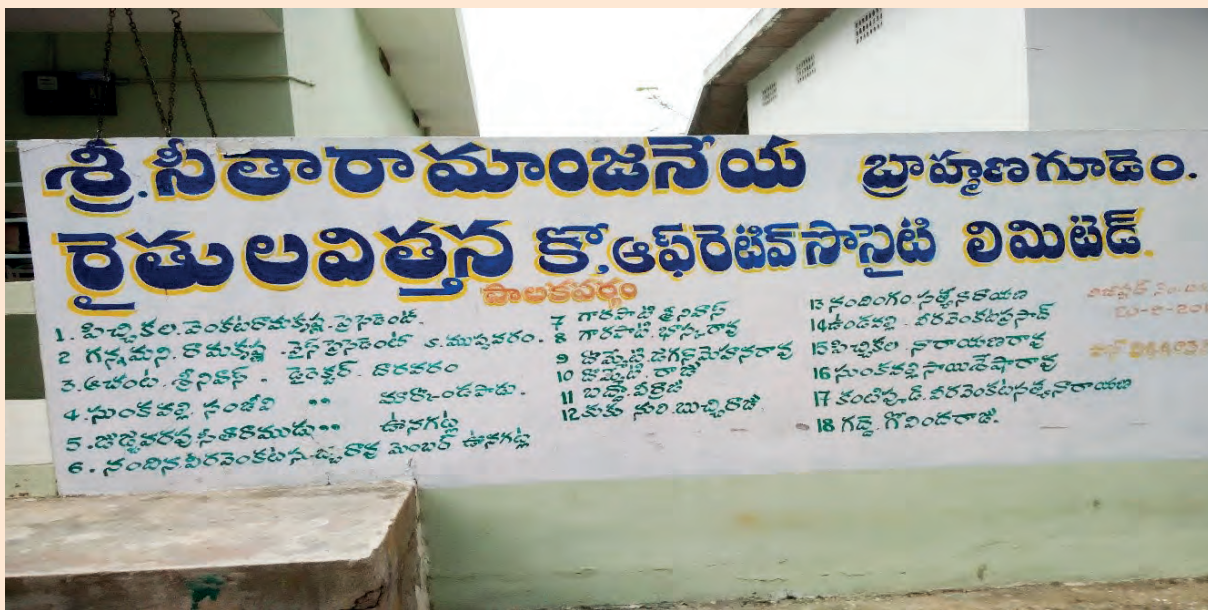 శ్రీ.సీతారామాంజనేయ బ్రాహ్మణగూడెం.
రైతులవిత్తన కో.ఆఫ్‌రెటివ్ సొసైటి లిమిటెడ్.
పాలకవర్గం
1. పిచ్చికల. వెంకటరామకృష్ణ. ప్రెసిడెంట్.
2 గన్నమని. రామకృష్ణ - వైస్ ప్రెసిడెంట్ ఎ. ముప్పవరం.
3. ఆచంట. శ్రీనివాస్ - డైరెక్టర్ - దారవరం
4. సుంకవల్లి సంజీవి " మార్కొండపాడు.
5. జుజ్జవరపు సీతారాముడు " ఊనగట్ల
6. నందిన వీరవెంకట సుబ్బారావు మెంబర్ ఊనగట్ల
7 గారపాటి శ్రీనివాస్
8 గారపాటి. భాస్కరరావు
9 కొమ్మిటి. జగన్మోహనరావు
10 కొమ్మిటి. రాజా
11 బద్దా. వీర్రాజు
12 నురి. బుచ్చిరాజు
13 నందిగం. సత్యనారాయణ
14 ఉండవల్లి. వీరవెంకటప్రసాద్
15 పిచ్చికల. నారాయణరావు
16 సుంకవల్లి సాయిశేషారావు
17 వీరవెంకటసత్యనారాయణ
18 గద్దె. గోవిందరాజు.